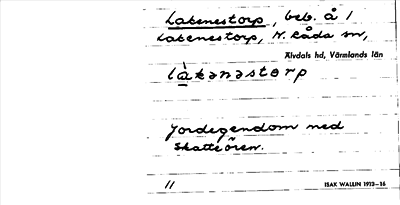 Lakenestorp, beb. å 1
Lakenestorp, N. Råda sn,
Älvdals hd, Värmlands län
làkənəstɔrp
Jordegendom med
skatteören.
11
ISAK WALLIN 1913–16